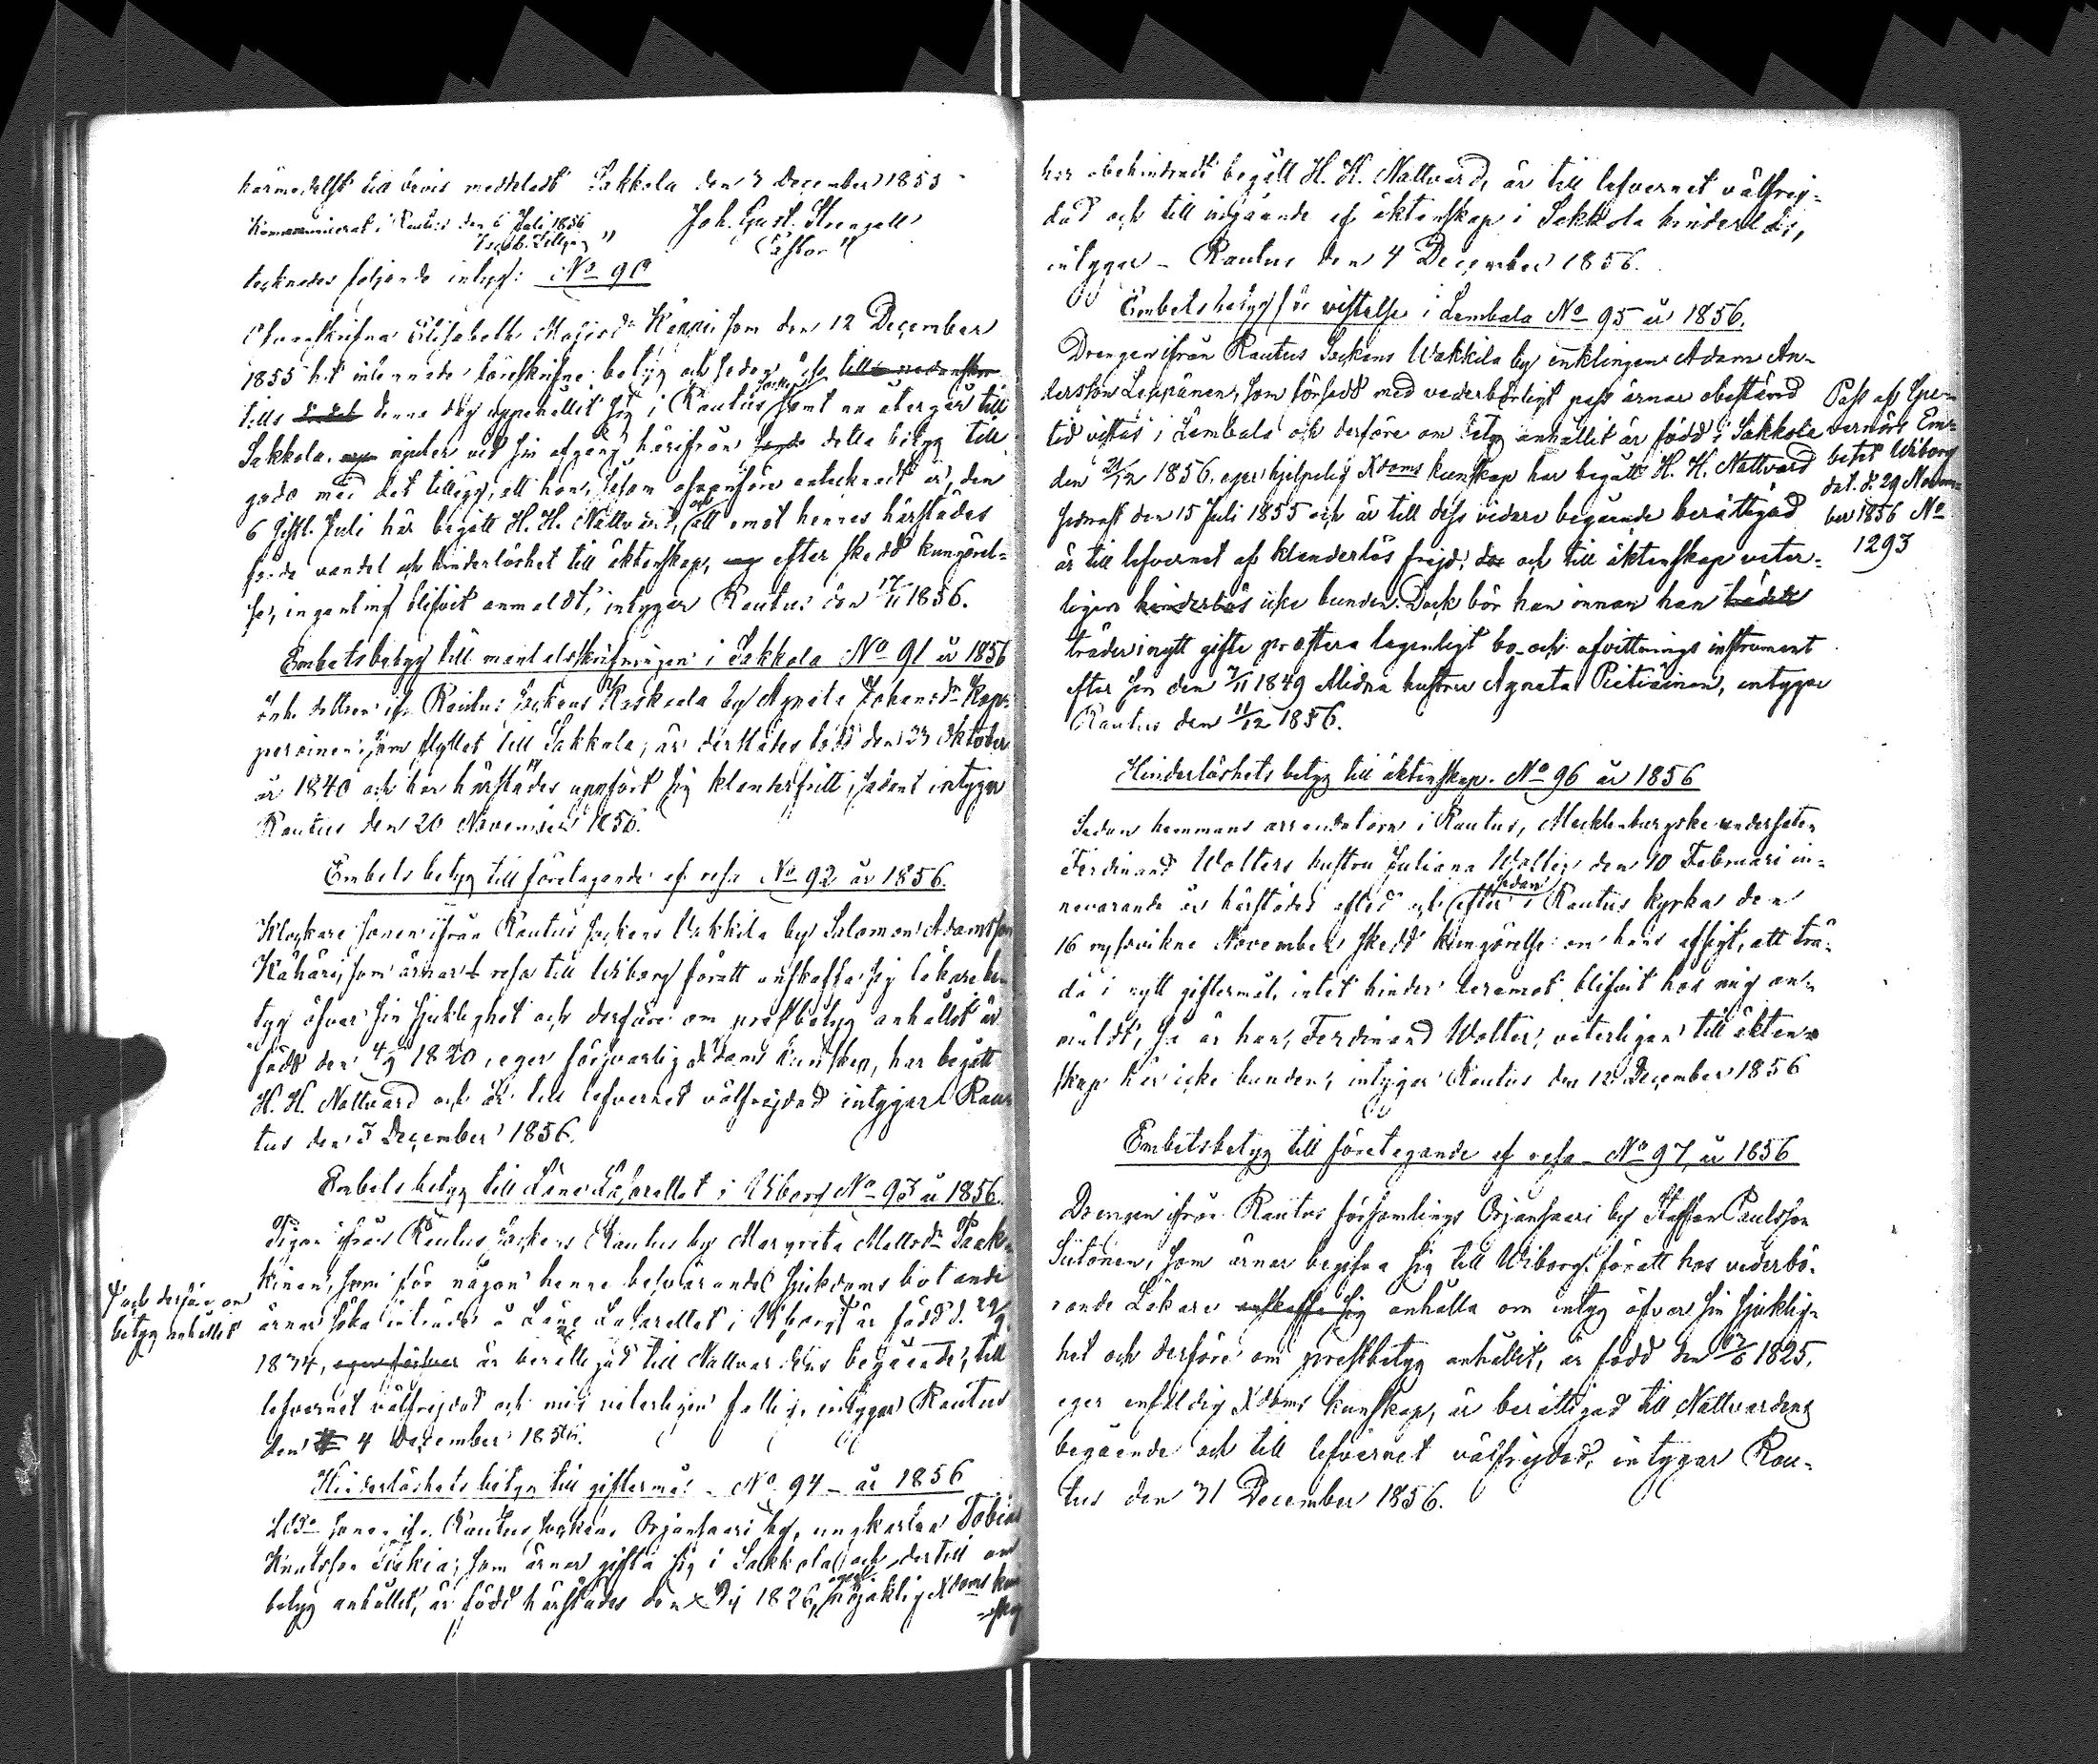 härmedelst till bevis meddeladt Sakkola den 3 December 1855
Kommunicerat i Rautus den 6 Juli 1856 Joh. Gust. Strengell
Pastor
tecknades följande intyg: No 90
Elisabeth Majasdr Keppi som den 12 December
1855 hit inlemnade föreskrifne betyg och sedan
tills denna dag uppehållit sig i Rautus socken samt nu återgår till
Sakkola. njuter vid sin afgång härifrån detta betyg till
godo med det tillägg, att hon, såsom ofvanföre antecknadt är, den
6 sistl. Juli här begått H. H. Nattvard, och att emot hennes härstädes
förda vandel och hinderlöshet till äktenskap, efter skedd kungörel-
se, ingenting blifvit anmäldt, intygar Rautus den 17/11 1856.
Embetsbetyg till mantalsskrifningen i Sakkola No 91 år 1856
Inh. dottren ifr. Rautus Sockens Raskala by Agneta Johansdr Kop-
peroinen som flyttat till Sakkola, är derstädes född den 23 Oktober
år 1840 och har härstädes uppfört sig klanderfritt, sådant intygar
Rautus den 20 November 1856.
Embets betyg till företagande af resa No 92 år 1856.
Klockare sonen ifrån Rautus sockens Wakkila by Salomon Adamsson
Kähäri, som ärnar resa till Wiborg föratt anskaffa sig läkare be-
tyg öfver sin sjuklighet och derföre om prestbetyg anhållit är
född den 4/9 1820, eger försvarlig Xdoms kunskap, har begått
H. H. Nattvard och är till lefvernet välfrejdad intygar Rau-
tus den 3 December 1856.
Embets betyg till Läne Lasarettet i Wiborg No 93 år 1856.
Pigan ifrån Rautus Sockens Rautus by Margreta Mattsdr Paak-
kinen, som för någon henne besvärande sjukdoms botande
och derföre om
betyg anhållit
ärnar söka inträde å Läne Lasarettet i Wiborg är född d. 29/9
1834, är berättigad till Nattvardens begående, till
lefvernet välfrejdad och mig veterligen fattig, intygar Rautus
den 4 December 1856.
Hinderlöshets betyg till giftermål No 94 år 1856
sonen ifr. Rautus sockens Orjansaari by, ungkarlen Tobias
Knutsson Kiskia, som ärnar gifta sig i Sakkola och dertill om
betyg anhållit, är född härstädes den 1826, eger nöjaktig Xdoms kun-
skap
har obehindradt begått H. H. Nattvard, är till lefvernet välfrej-
dad och till ingående af äktenskap i Sakkola hinderlös,
intygar Rautus den 4 December 1856.
Embetsbetyg för vistelse i Lembala No 95 år 1856.
Drengen ifrån Rautus Sockens Wakkila by enklingen Adam An-
dersson Leppänen, som försedd med vederbörligt pass ärnar obestämd
tid vistas i Lembala och derföre om betyg anhållit är född i Sakkola
den 21/12 1856, eger hjelpelig Xdoms kunskap har begått H. H. Nattvard
sednast den 15 Juli 1855 och är till dess vidare begående berättigad
är till lefvernet af klanderlös frejd, och till äktenskap veter-
ligen hinderlös icke bunden. Dock bör han innan han träder
träder i nytt gifte præstera lagenligt bo- och afvittrings instrument
efter sin den 7/11 1849 Aflidna hustru Agneta Pietiäinen, intygar
Rautus den 11/12 1856.
Pass af Guv-
vernörs Em-
betet Wiborg
dat. d. 29 Novem-
ber 1856 No
1293
Hinderlöshets betyg till äktenskap. No 96 år 1856
Sedan hemmans arrendatorn i Rautus, Mecklenburgske undersåten
Ferdinand Wolters hustru Juliana den 10 Februari in-
nevarande år härstädes aflidit och sedan efter i Rautus kyrka den
16 nyssvikne November skedd kungörelse om hans afsigt, att trä-
da i nytt giftermål, intet hinder deremot blifvit hos mig an-
mäldt, så är han, Ferdinand Wolter, veterligen till äkten-
skap här icke bunden, intygar Rautus den 12 December 1856
Embetsbetyg till företagande af resa No 97 år 1856
Drengen ifrån Rautus församlings Orjansaari by Staffan Paulsson
Siitonen, som ärnar begifva sig till Wiborg föratt hos vederbö-
rande Läkare anskaffa sig anhålla om intyg öfver sin sjuklig-
het och derföre om prestbetyg anhållit, är född den 1825,
eger enfaldig Xdoms kunskap, är berättigad till Nattvardens
begående och till lefvernet välfrejdad, intygar Rau-
tus den 31 December 1856.